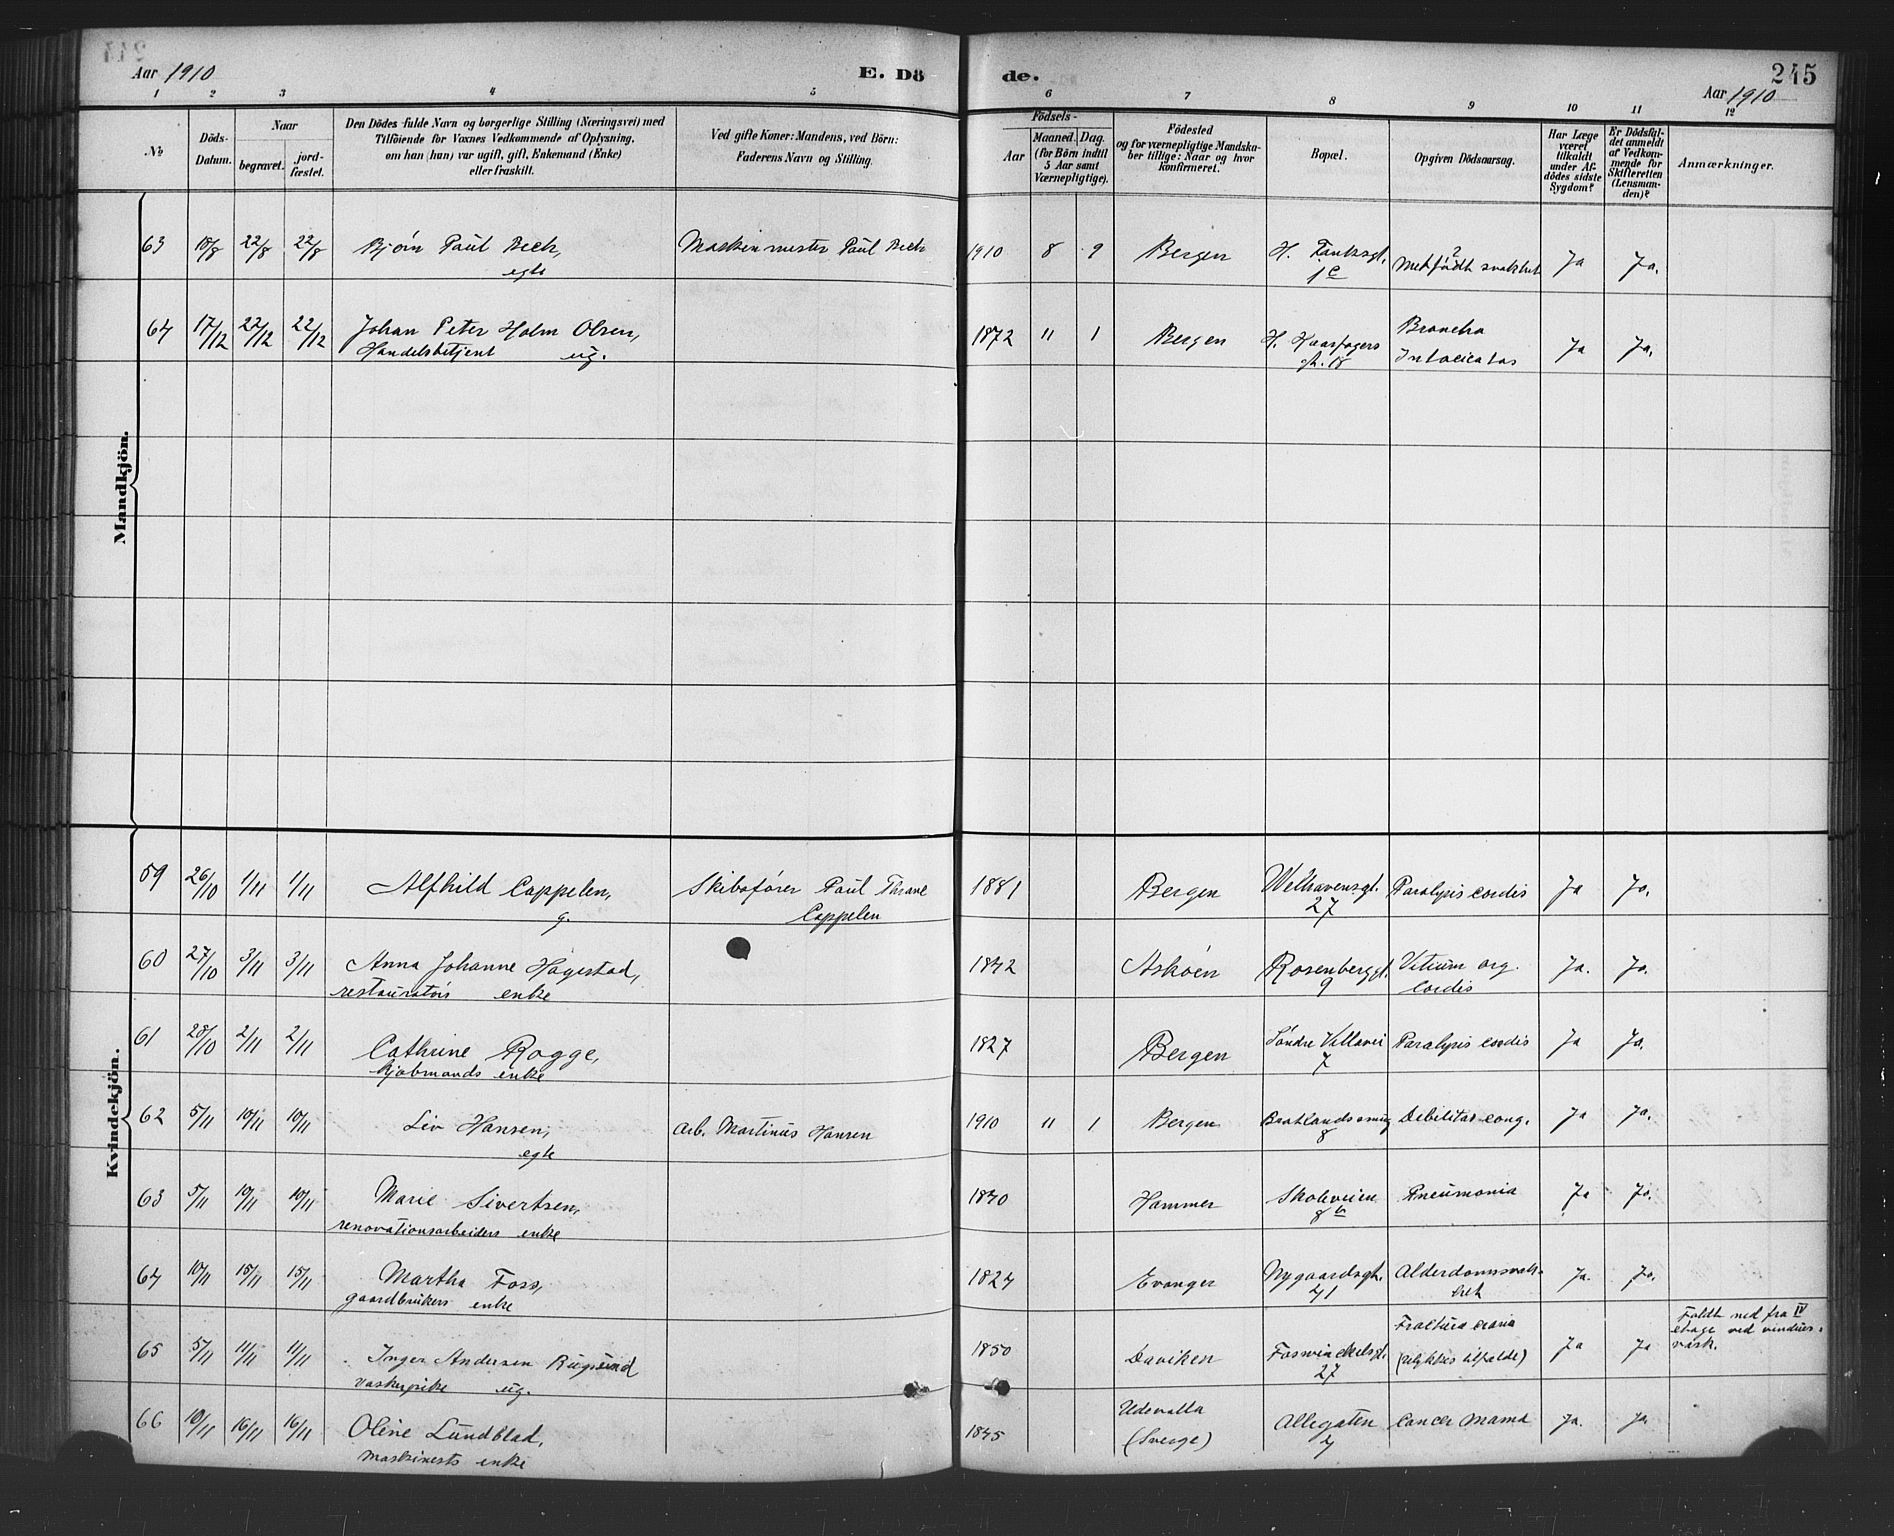 Aar 1910
E. Dö
de.
245
Aar 1910
1 2 3 4 5 6 7 8 9 10 11 12
№
Döds-
Datum.
Naar
begravet.
jord-
fæstet.
Den Dödes fulde Navn og borgerlige Stilling (Næringsvei) med
Tilföiende for Voxnes Vedkommende af Oplysning,
om hun (han) var ugift, gift, Enkemand (Enke)
eller fraskilt.
Ved gifte Koner: Mandens, ved Börn:
Faderens Navn og Stilling.
Födsels-
Aar
Maaned. Dag.
(for Börn indtil
5 Aar samt
Værnepligtige).
Födested
og for værnepligtige Mandska-
ber tillige: Naar og hvor
konfirmeret.
Bopæl.
Opgiven Dödsaarsag.
Har Læge
været
tilkaldt
under Af-
dödes sidste
Sygdom?
Er Dödsfal-
det anmeldt
af Vedkom-
mende for
Skifteretten
(Lensman-
den)?
Anmærkninger.
Mandkjön.
63 18/8 22/8 22/8 Bjørn Paul Bech, Maskinmester Paul Bech 1910 8 9 Bergen H. Tanksgt. Medfødt svakhet Ja Ja.
egte 1c
64 17/12 22/12 22/12 Johan Peter Holm Olsen, 1872 11 1 Bergen H. Haarfagers Ja Ja.
Handelsbetjent ug. gt. 18
Kvindekjön.
59 26/10 1/11 1/11 Alfhild Cappelen, Skibsfører Paul Thrane 1881 Bergen Welhavensgt. Paralysis cordis Ja Ja.
g. Cappelen 27
60 27/10 3/11 3/11 Anna Johanne Hagestad, 1842 Askøen Rosenberggt. Vitium org. Ja. Ja.
restauratørs enke 9 Cordis
61 28/10 2/11 2/11 Cathrine Rogge, 1827 Bergen Søndre Villavei Paralysis cordis Ja Ja.
kjøbmands enke 7
62 5/11 10/11 10/11 Liv Hansen, arb. Martinus Hansen 1910 11 1 Bergen Bratlandssmug Debilitas cong. Ja Ja.
egte 8
63 5/11 10/11 10/11 Marie Sivertsen, 1840 Hammer Skoleveien Pneumonia Ja Ja.
renovationsarbeiders enke 8b
64 10/11 15/11 15/11 Martha Foss, 1824 Evanger Nygaardsgt. Alderdomssvak- Ja. Ja.
gaardbrukers enke 41 het
65 5/11 11/11 11/11 Inger Andersen Rugsund 1850 Daviken Fosswinckelsgt. Fractura crania Ja Ja Faldt ned fra IV
vaskepike ug. 27 (ulykkestilfælde) etage ved vindus-
vask.
66 10/11 16/11 16/11 Oline Lundblad, 1845 Udevalla Allegaten Cancer mama Ja. Ja
maskinists enke (Sverge)